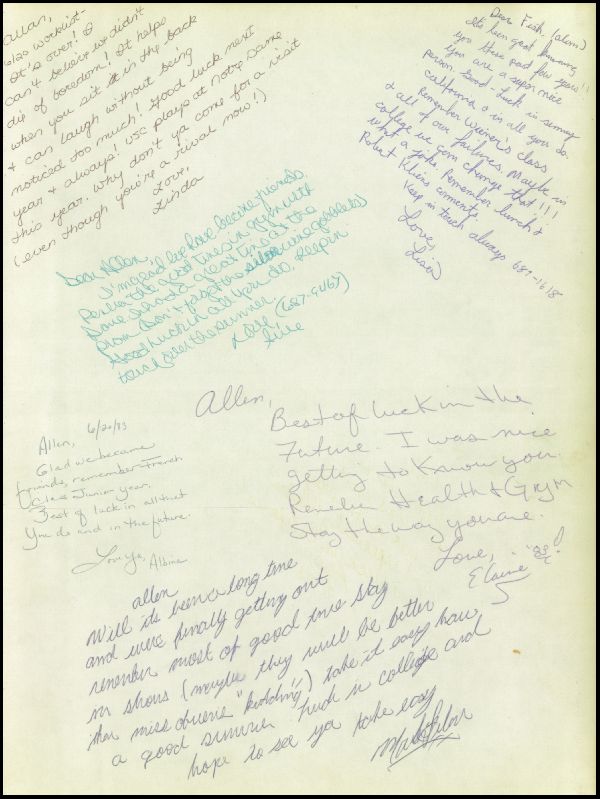 Allan,
6/20 workin'-
It's over! I
can't believe we didn't
die of boredom! It helps
when you sit in the back
& can laugh without being
noticed too much! Good luck next
year & always! USC plays at Notre Dame
this year. Why don't ya come for a visit
(even though you're a rival now!)
Love,
Linda
Dear Fish, (alan)
It's been great knowing
you these past few years!!
You are a super nice
person. Good-luck in sunny
California & in all you do.
Remember Weiner's class
& all of our failures. Maybe in
college we can change that!!!
What a joke. Remember lunch &
Robert Kleins comments.
Keep in touch always 687-1618
Love,
Lisa
Dear Allen,
I'm glad we have become friends.
the good times in gym with
had a great time at the
prom. Don't forget the wine goblets)
Good luck in all you do. Keep in
touch over the summer.
Love (687-9467)
Allen,
Best of luck in the
Future. I was nice
getting to know you.
Remeber Health & Gym
Stay the way you are.
Love, '83!
Elaine
Allen, 6/20/83
Glad we became
friends, remember French
Class Junior year.
Best of luck in all that
You do and in the future.
Love Ya, Albina
allen
Well its been a long time
and were finally getting out
remember most of good time stay
in shows (maybe they will be better
than miss "building") take it easy have
a good summer luck in college and
hope to see ya take easy